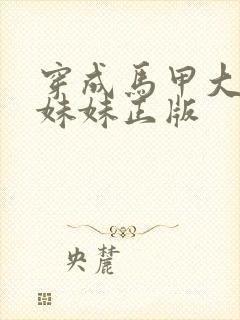 穿成馬甲大
妹妹正版
央麓